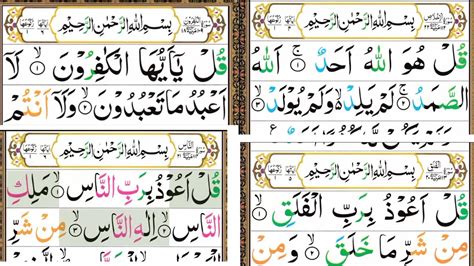 بِسْمِ اللهِ الرَّحْمٰنِ الرَّحِيْمِ
قُلْ يٰۤاَيُّهَا الْكٰفِرُوْنَ ۙ‏﴿۱﴾ لَاۤ
اَعْبُدُ مَا تَعْبُدُوْنَ ۙ‏﴿۲﴾ وَلَاۤ اَنْتُمْ
بِسْمِ اللهِ الرَّحْمٰنِ الرَّحِيْمِ
قُلْ هُوَ اللهُ اَحَدٌ ۚ‏﴿۱﴾ اَللهُ
الصَّمَدُ ۚ‏﴿۲﴾ لَمْ يَلِدْ ۙ وَلَمْ يُوْلَدْ ۙ‏﴿۳﴾
بِسْمِ اللهِ الرَّحْمٰنِ الرَّحِيْمِ
قُلْ اَعُوْذُ بِرَبِّ النَّاسِ ۙ‏﴿۱﴾ مَلِكِ
النَّاسِ ۙ‏﴿۲﴾ اِلٰهِ النَّاسِ ۙ‏﴿۳﴾ مِنْ شَرِّ
بِسْمِ اللهِ الرَّحْمٰنِ الرَّحِيْمِ
قُلْ اَعُوْذُ بِرَبِّ الْفَلَقِ ۙ‏﴿۱﴾
مِنْ شَرِّ مَا خَلَقَ ۙ‏﴿۲﴾ وَمِنْ